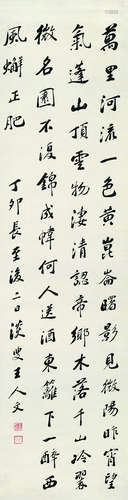 萬里河流一色黃崑崙曙影見微陽昨宵望
氣蓬山頂靈物淒清認帝鄉木落千山冷翠
微名園不復錦成幃何人送酒東籬下一醉西
風蠏正肥
丁卯長至後二日淡叟王人文